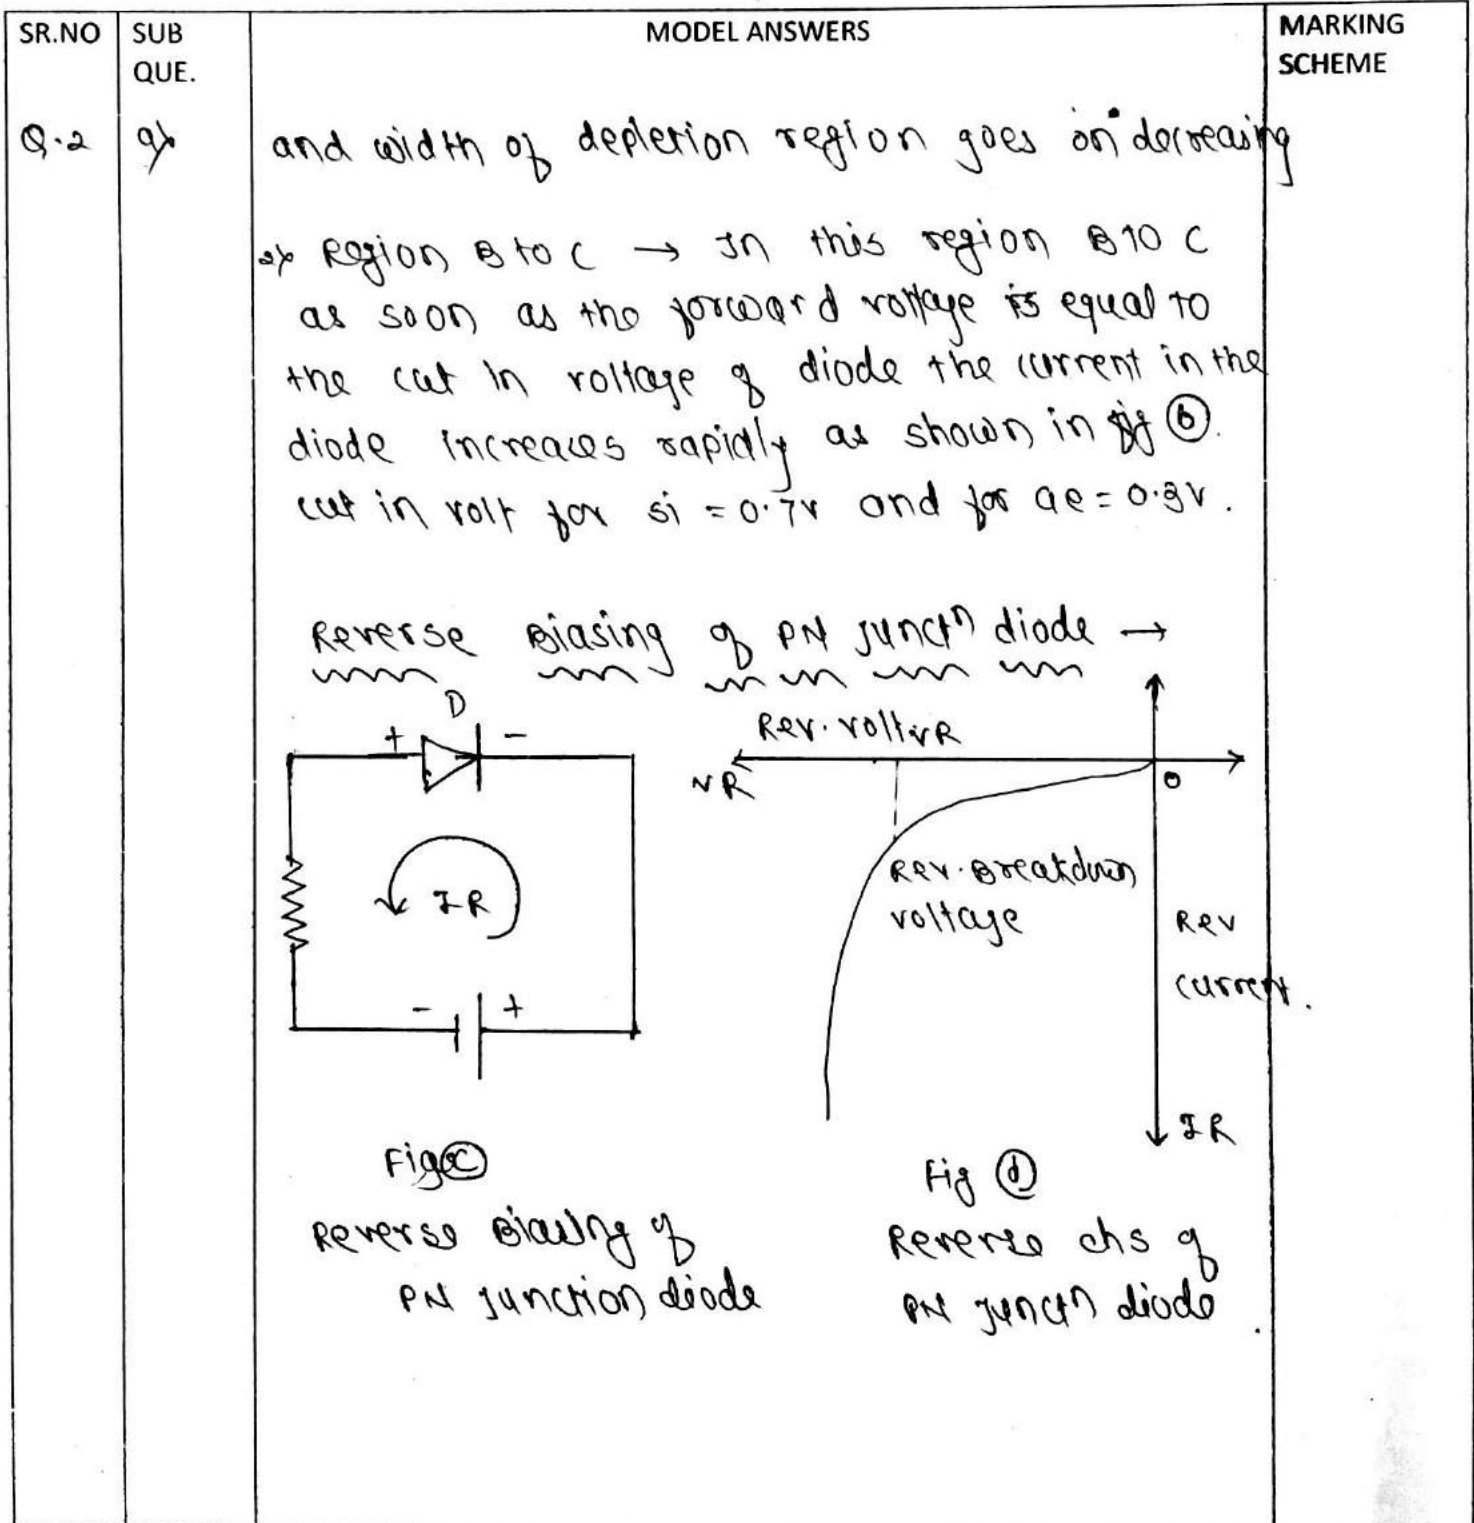 SR.NO SUB QUE. MODEL ANSWERS MARKING SCHEME
Q.2 a) and width of depletion region goes on decreasing
2) Region B to C → In this region B to C
as soon as the forward voltage is equal to
the cut in voltage of diode the current in the
diode increases rapidly as shown in fig (b).
cut in volt for si = 0.7v and for Ge = 0.3v.
Reverse Biasing of PN junctn diode →
D
+ -
IR
- +
Rev. volt VR
VR
O
Rev. Breakdown
voltage
Rev
current.
IR
Fig (c)
Reverse Biasing of
PN junction diode
Fig (d)
Reverse chs of
PN junctn diode